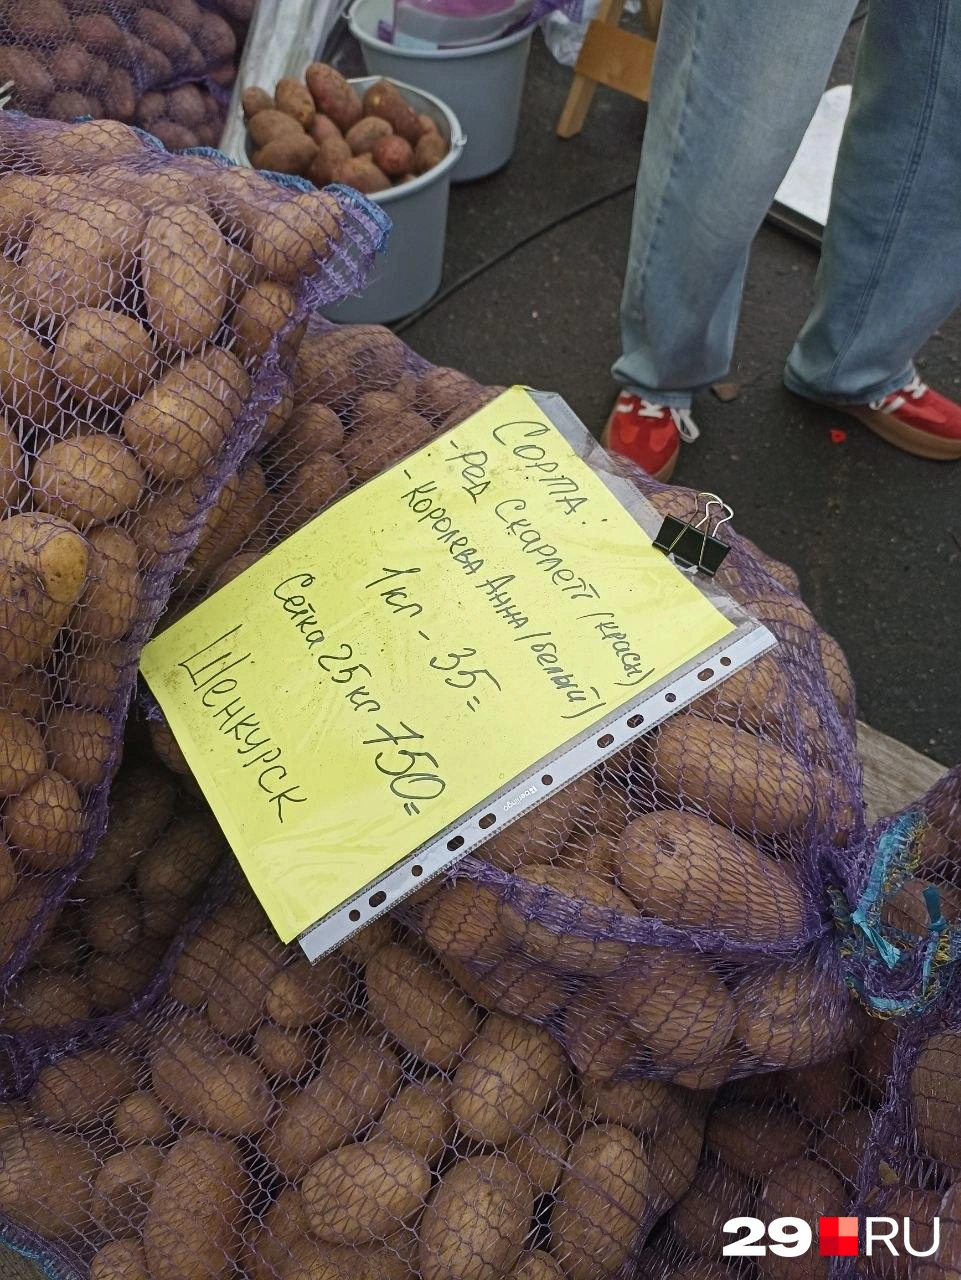 Сорта:
- Ред Скарлетт (красн)
- Королева Анна (белый)
1 кг - 35=
Сетка 25 кг 750=
Шенкурск
berlingo
29.RU